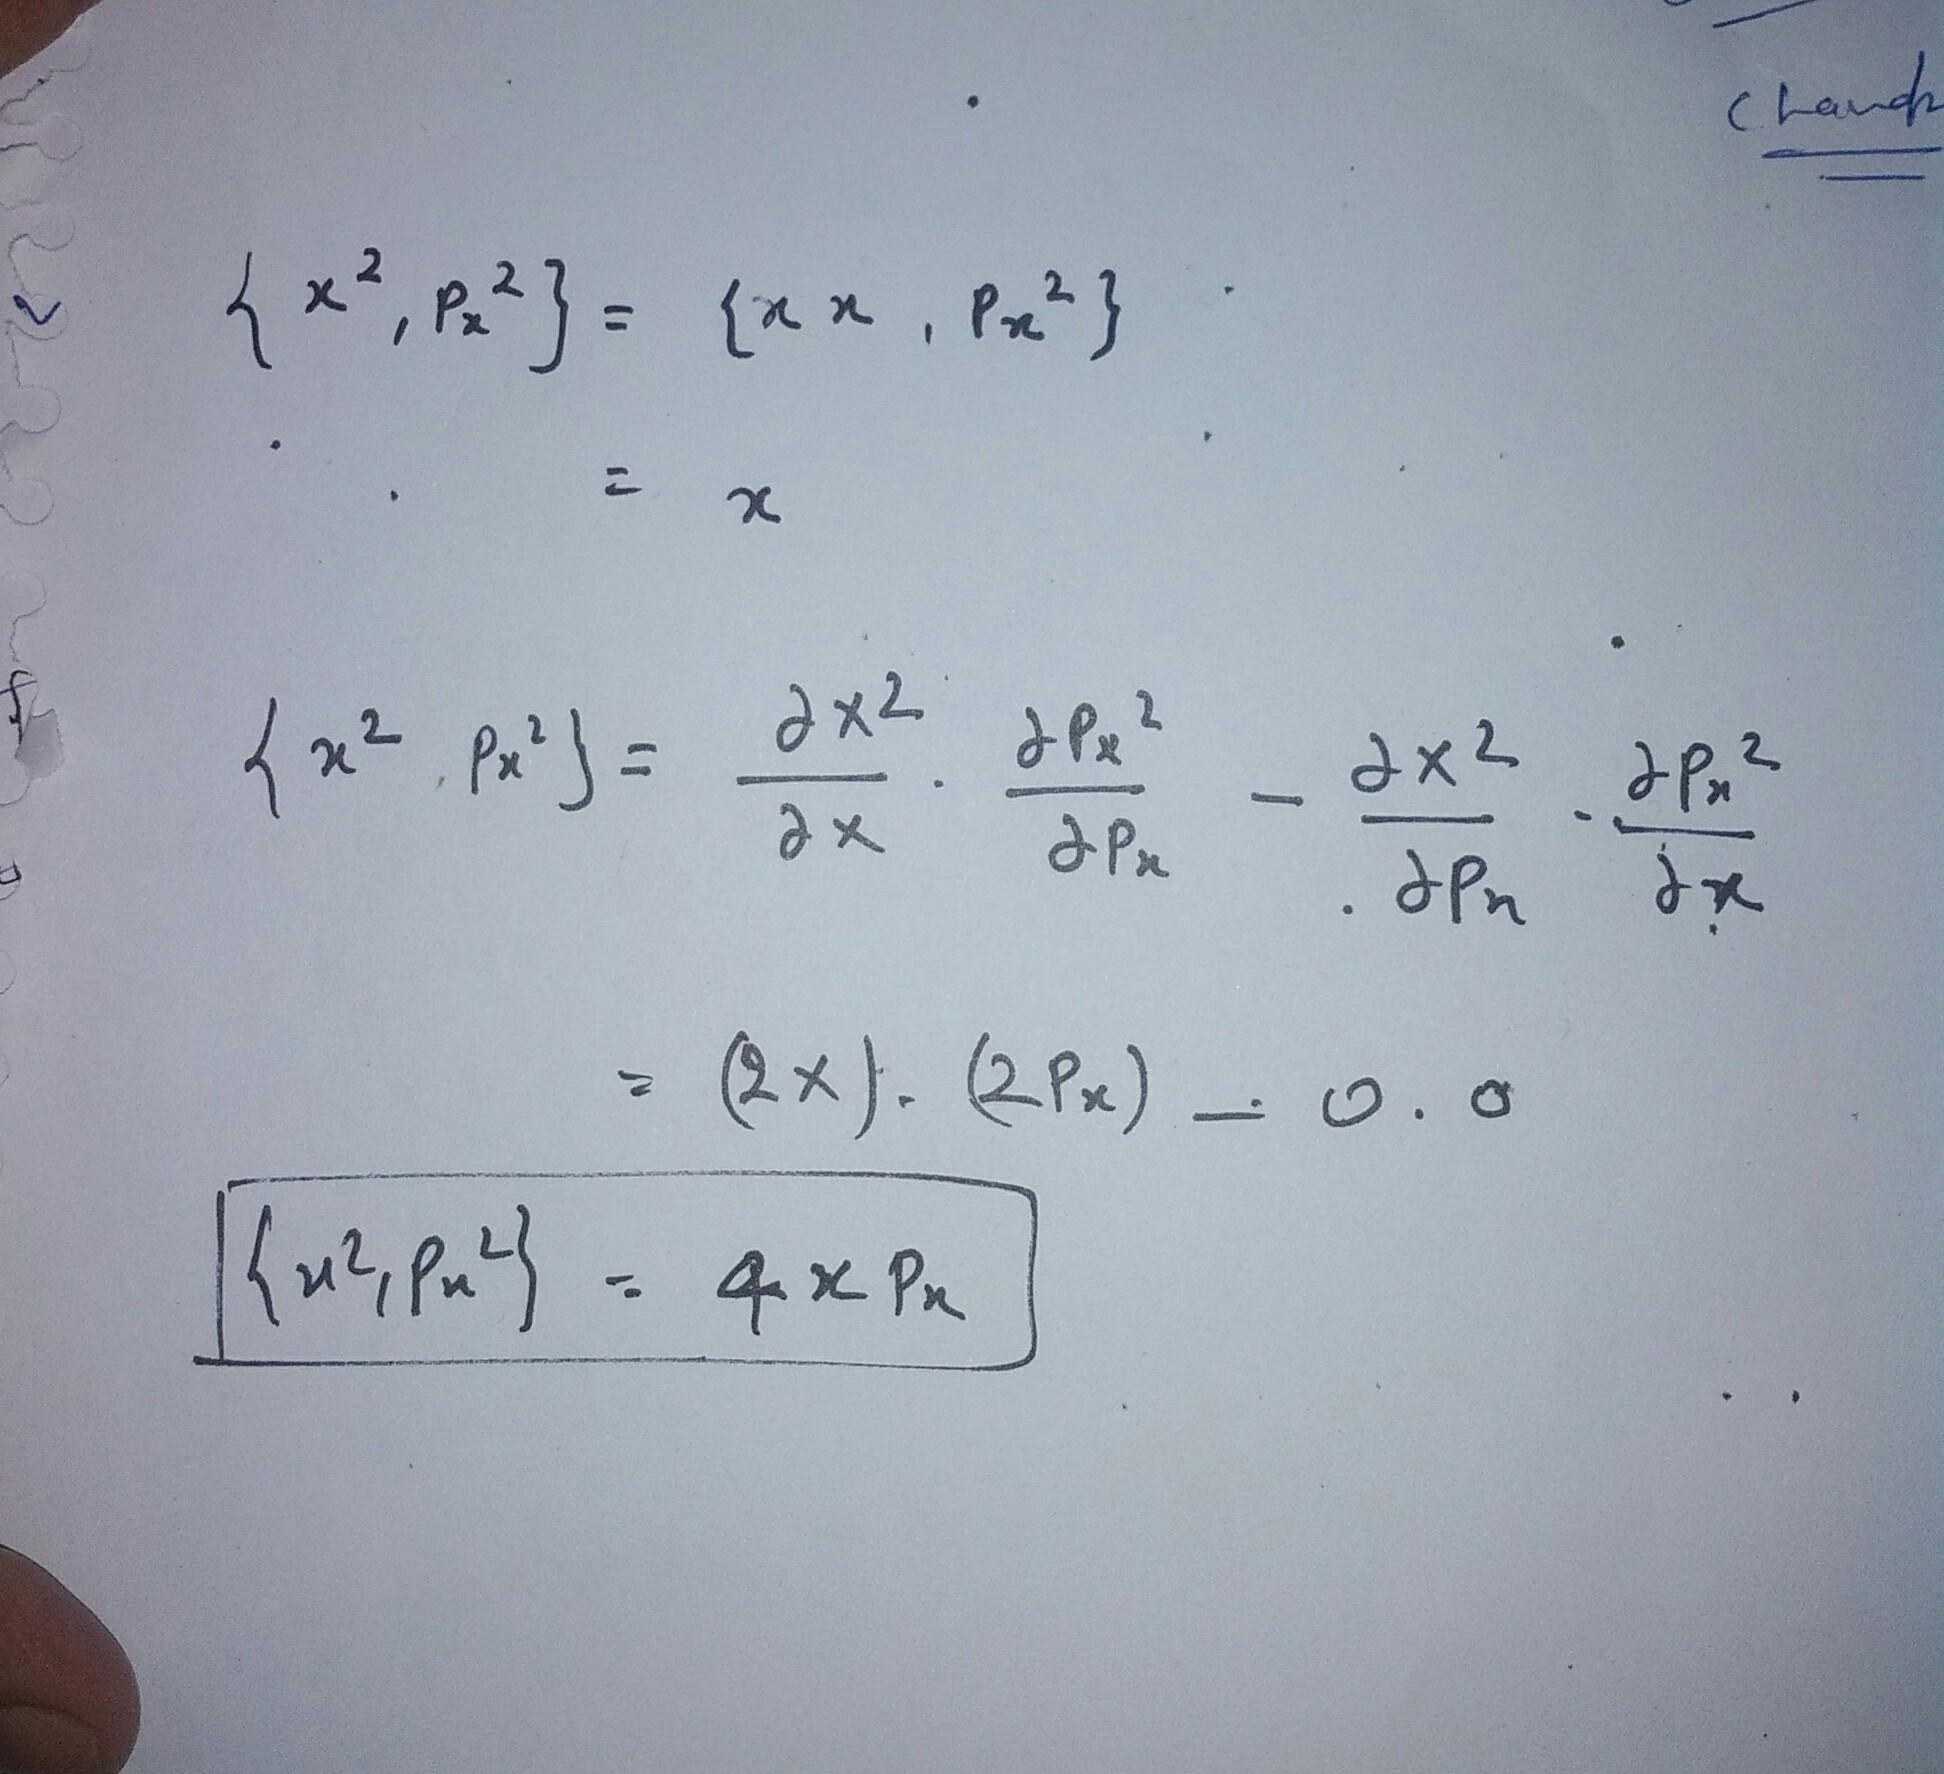 { x², Pₓ² } = { x x , Pₓ² }
= x
{ x² , Pₓ² } = ∂x²/∂x · ∂Pₓ²/∂Pₓ − ∂x²/∂Pₓ · ∂Pₓ²/∂x
= (2x) . (2Pₓ) − 0 . 0
{ x², Pₓ² } = 4 x Pₓ